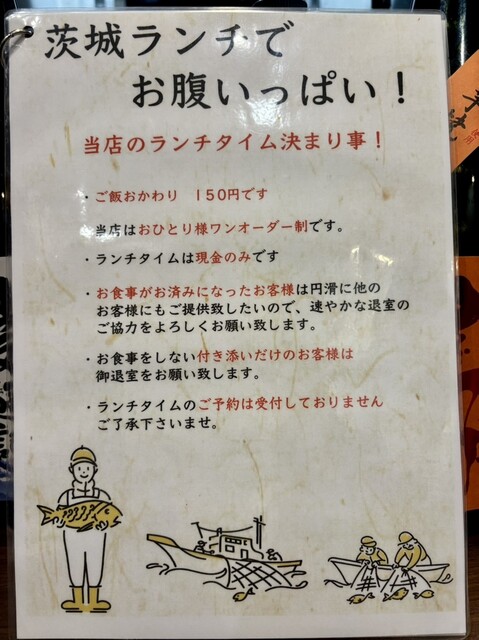 茨城ランチで
お腹いっぱい！
当店のランチタイム決まり事！
・ご飯おかわり　150円です
当店はおひとり様ワンオーダー制です。
・ランチタイムは現金のみです
・お食事がお済みになったお客様は円滑に他の
お客様にもご提供致したいので、速やかな退室の
ご協力をよろしくお願い致します。
・お食事をしない付き添いだけのお客様は
御退室をお願い致します。
・ランチタイムのご予約は受付しておりません
ご了承下さいませ。